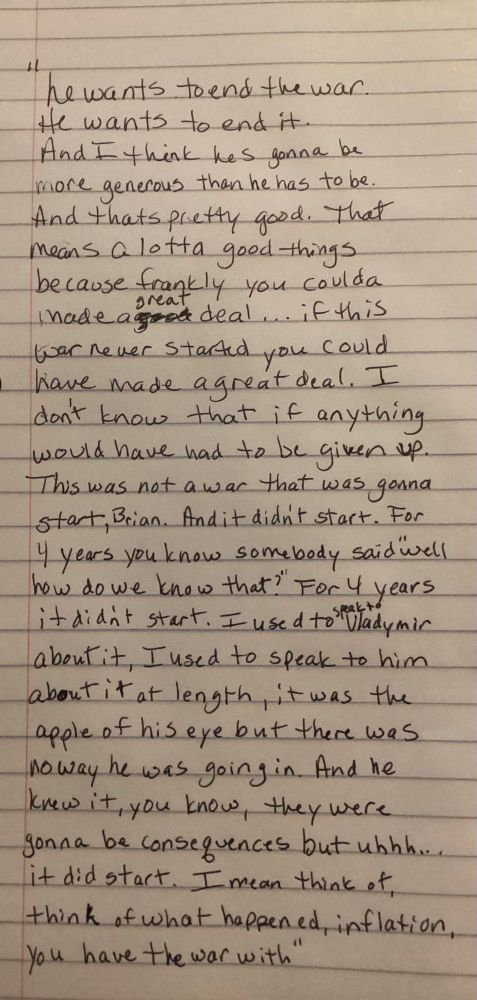 "
he wants to end the war.
He wants to end it.
And I think hes gonna be
more generous than he has to be.
And thats pretty good. That
means a lotta good things
because frankly you coulda
made a great deal... if this
war never started you could
have made a great deal. I
don't know that if anything
would have had to be given up.
This was not a war that was gonna
start, Brian. And it didn't start. For
4 years you know somebody said "well
how do we know that?" For 4 years
it didn't start. I used to speak to Vladymir
about it, I used to speak to him
about it at length, it was the
apple of his eye but there was
no way he was going in. And he
knew it, you know, they were
gonna be consequences but uhhh...
it did start. I mean think of,
think of what happened, inflation,
you have the war with"